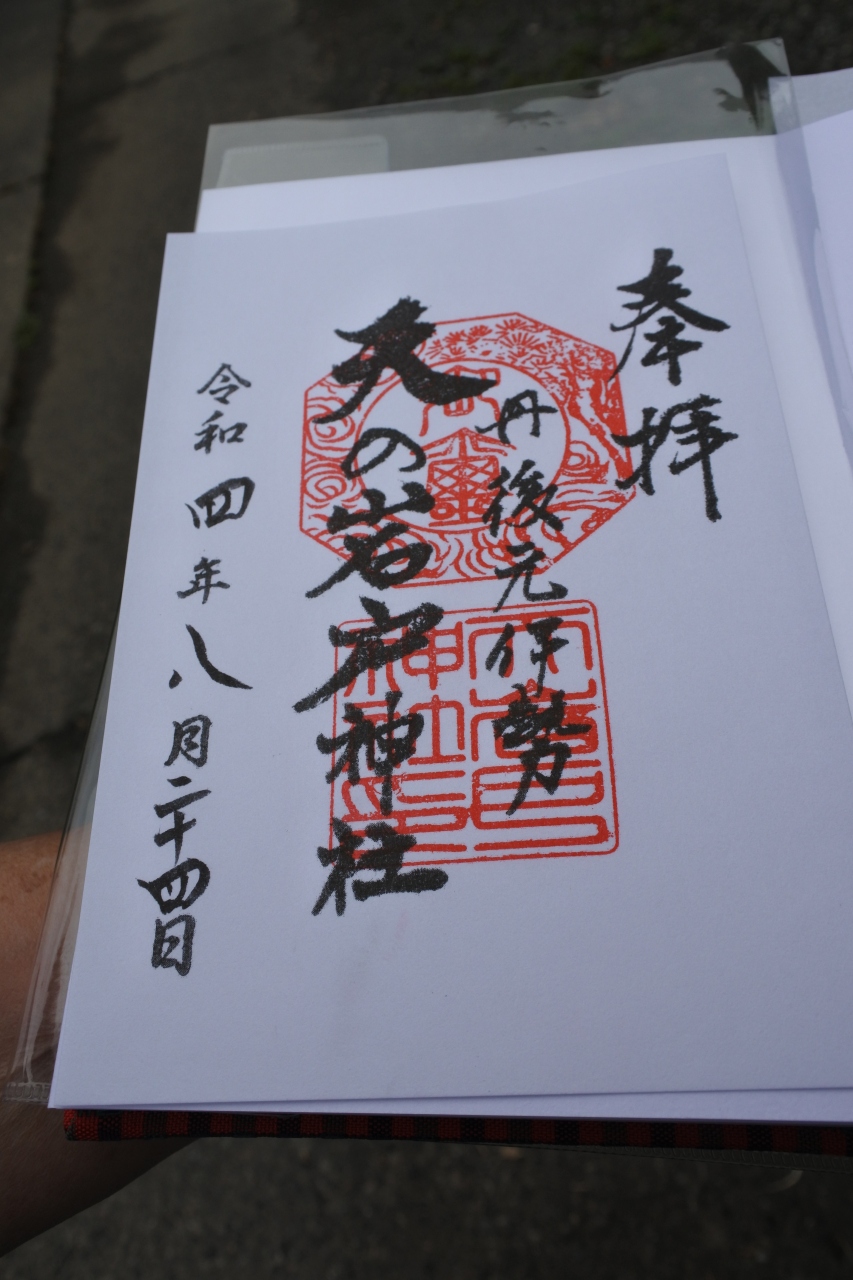 奉拝
丹後元伊勢
天の岩戸神社
令和四年八月二十四日